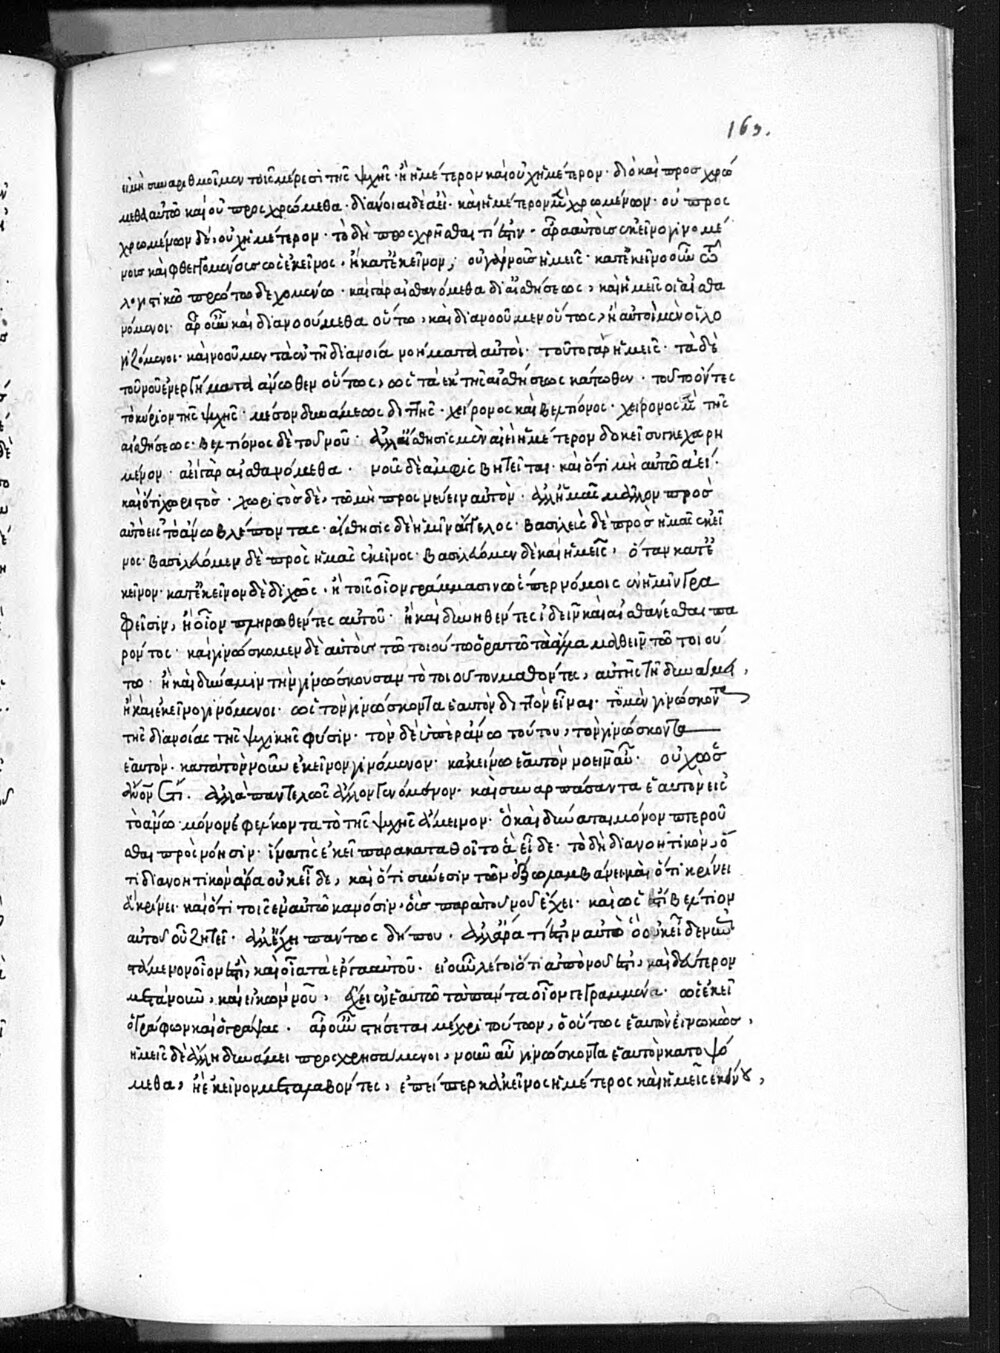 163.
εἰ μὴ συναριθμοῖμεν τοῖς μέρεσι τῆς ψυχῆς · ἢ ἡμέτερον καὶ οὐχ ἡμέτερον · διὸ καὶ προσχρώ
μεθα αὐτῷ καὶ οὐ προσχρώμεθα · διανοίᾳ δὲ ἀεί · καὶ ἡμέτερον μὲν χρωμένων · οὐ προς
χρωμένων δὲ, οὐχ ἡμέτερον · τὸ δὴ προσχρῆσθαι τί ἐστιν · ἆρα αὐτοὺς ἐκεῖνο γινομέ
νους καὶ φθεγγομένους ὡς ἐκεῖνος · ἢ κατ' ἐκεῖνον, οὐ γὰρ νοῦς ἡμεῖς · κατ' ἐκεῖνο οὖν τῷ
λογιστικῷ πρώτῳ δεχομένῳ · καὶ γὰρ αἰσθανόμεθα δι' αἰσθήσεως, καὶ ἡμεῖς οἱ αἰσθα
νόμενοι · ἆρ' οὖν καὶ διανοούμεθα οὕτω, καὶ διανοοῦμεν οὕτως, ἢ αὐτοὶ μὲν οἱ λο
γιζόμενοι · καὶ νοοῦμεν τὰ ἐν τῇ διανοίᾳ νοήματα αὐτοί · τοῦτο γὰρ ἡμεῖς · τὰ δὲ
τοῦ νοῦ ἐνεργήματα ἄνωθεν οὕτως, ὡς τὰ ἐκ τῆς αἰσθήσεως κάτωθεν · τοῦτο ὄντες
τὸ κύριον τῆς ψυχῆς · μέσον δυνάμεως διττῆς · χείρονος καὶ βελτίονος · χείρονος μὲν τῆς
αἰσθήσεως · βελτίονος δὲ τοῦ νοῦ · ἀλλ' αἴσθησις μὲν αἰεὶ ἡμέτερον δοκεῖ συγκεχωρη
μένον · ἀεὶ γὰρ αἰσθανόμεθα · νοῦς δὲ ἀμφισβητεῖται · καὶ ὅτι μὴ αὐτῷ ἀεί ·
καὶ ὅτι χωριστός · χωριστὸς δὲ, τῷ μὴ προσνεύειν αὐτὸν · ἀλλ' ἡμᾶς μᾶλλον πρὸς
αὐτὸν εἰς τὸ ἄνω βλέποντας · αἴσθησις δὲ ἡμῖν ἄγγελος · βασιλεὺς δὲ πρὸς ἡμᾶς ἐκεῖ
νος · βασιλεύομεν δὲ πρὸς ἡμᾶς ἐκεῖνος · βασιλεύομεν δὲ καὶ ἡμεῖς, ὅταν κατ' ἐ
κεῖνον · κατ' ἐκεῖνον δὲ διχῶς, ἢ τοῖς οἷον γράμμασιν ὥσπερ νόμοις ἐν ἡμῖν γρα
φεῖσιν, ἢ οἷον πληρωθέντες αὐτοῦ · ἢ καὶ δυνηθέντες ἰδεῖν καὶ αἰσθάνεσθαι πα
ρόντος · καὶ γινώσκομεν δὲ αὐτοὺς τῷ τοιούτῳ ὁρατῷ τὰ ἄλλα μαθεῖν τῷ τοιού
τῳ · ἢ καὶ δύναμιν τὴν γινώσκουσαν τὸ τοιοῦτον μαθόντες, αὐτῇ τῇ δυνάμει,
ἢ καὶ ἐκεῖνο γινόμενοι · ὡς τὸν γινώσκοντα ἑαυτὸν διττὸν εἶναι · τὸν μὲν γινώσκοντα
τῆς διανοίας τῆς ψυχικῆς φύσιν · τὸν δὲ ὑπεράνω τούτου, τὸν γινώσκοντα
ἑαυτὸν · κατὰ τὸν νοῦν ἐκεῖνον γινόμενον · κἀκείνῳ ἑαυτὸν νοεῖν αὖ · οὐχ ὡς
ἄνθρωπον ἔτι · ἀλλὰ παντελῶς ἄλλον γενόμενον · καὶ συναρπάσαντα ἑαυτὸν εἰς
τὸ ἄνω · μόνον ἐφέλκοντα τὸ τῆς ψυχῆς ἄμεινον · ὃ καὶ δύναται μόνον πτεροῦ
σθαι πρὸς νόησιν · ἵνα τις ἐκεῖ παρακαταθοῖτο ἃ εἶδε · τὸ δὴ διανοητικὸν, ὅ
τι διανοητικὸν ἆρα οὐκ εἶδε, καὶ ὅτι σύνεσιν τῶν ἔξω λαμβάνει, καὶ ὅτι κρίνει
ἃ κρίνει · καὶ ὅτι τοῖς ἐν αὐτῷ κανόσιν, οἷς παρὰ τοῦ νοῦ ἔχει · καὶ ὡς ἔστι βέλτιον
αὐτοῦ οὗ ζητεῖ · ἀλλ' ἔχει πάντως δήπου · ἀλλ' ἆρα τί ἐστιν αὐτὸ ὃ οὐκ εἶδεν
ἐπιστάμενον οἷον ἐστὶ, καὶ οἷα τὰ ἔργα αὐτοῦ · εἰ οὖν λέγοι ὅτι ἀπὸ νοῦ ἐστι, καὶ δεύτερον
μετὰ νοῦν, καὶ εἰκὼν νοῦ, ἔχει ἐν ἑαυτῷ τὰ πάντα οἷον γεγραμμένα · ὡς ἐκεῖ
ὁ γράφων καὶ ὁ γράψας · ἆρ' οὖν στήσεται μέχρι τούτων, ὁ οὕτως ἑαυτὸν ἐγνωκώς,
ἡμεῖς δὲ ἄλλῃ δυνάμει προσχρησάμενοι, νοῦν αὖ γινώσκοντα ἑαυτὸν κατοψό
μεθα, ἢ ἐκεῖνον μεταλαβόντες, ἐπείπερ κἀκεῖνος ἡμέτερος καὶ ἡμεῖς ἐκείνου,